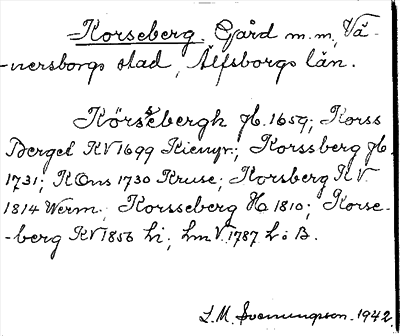 Korseberg. Gård m.m, Vä-
-nersborgs stad, Älfsborgs län.
Körssebergh jb. 1659; Korss
Bergel KV 1699 Kienyr; Korssberg jb.
1731; KOns 1730 Kruse; Korsberg KV.
1814 Werm; Korsseberg Hg 1810; Korse-
-berg KV 1856 Li; hm V. 1787 L: B.
L.M. Svenungson. 1942.